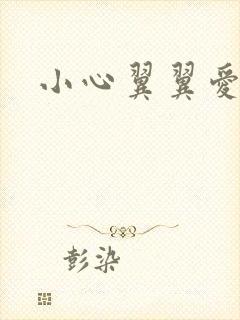 小心翼翼愛
彭染